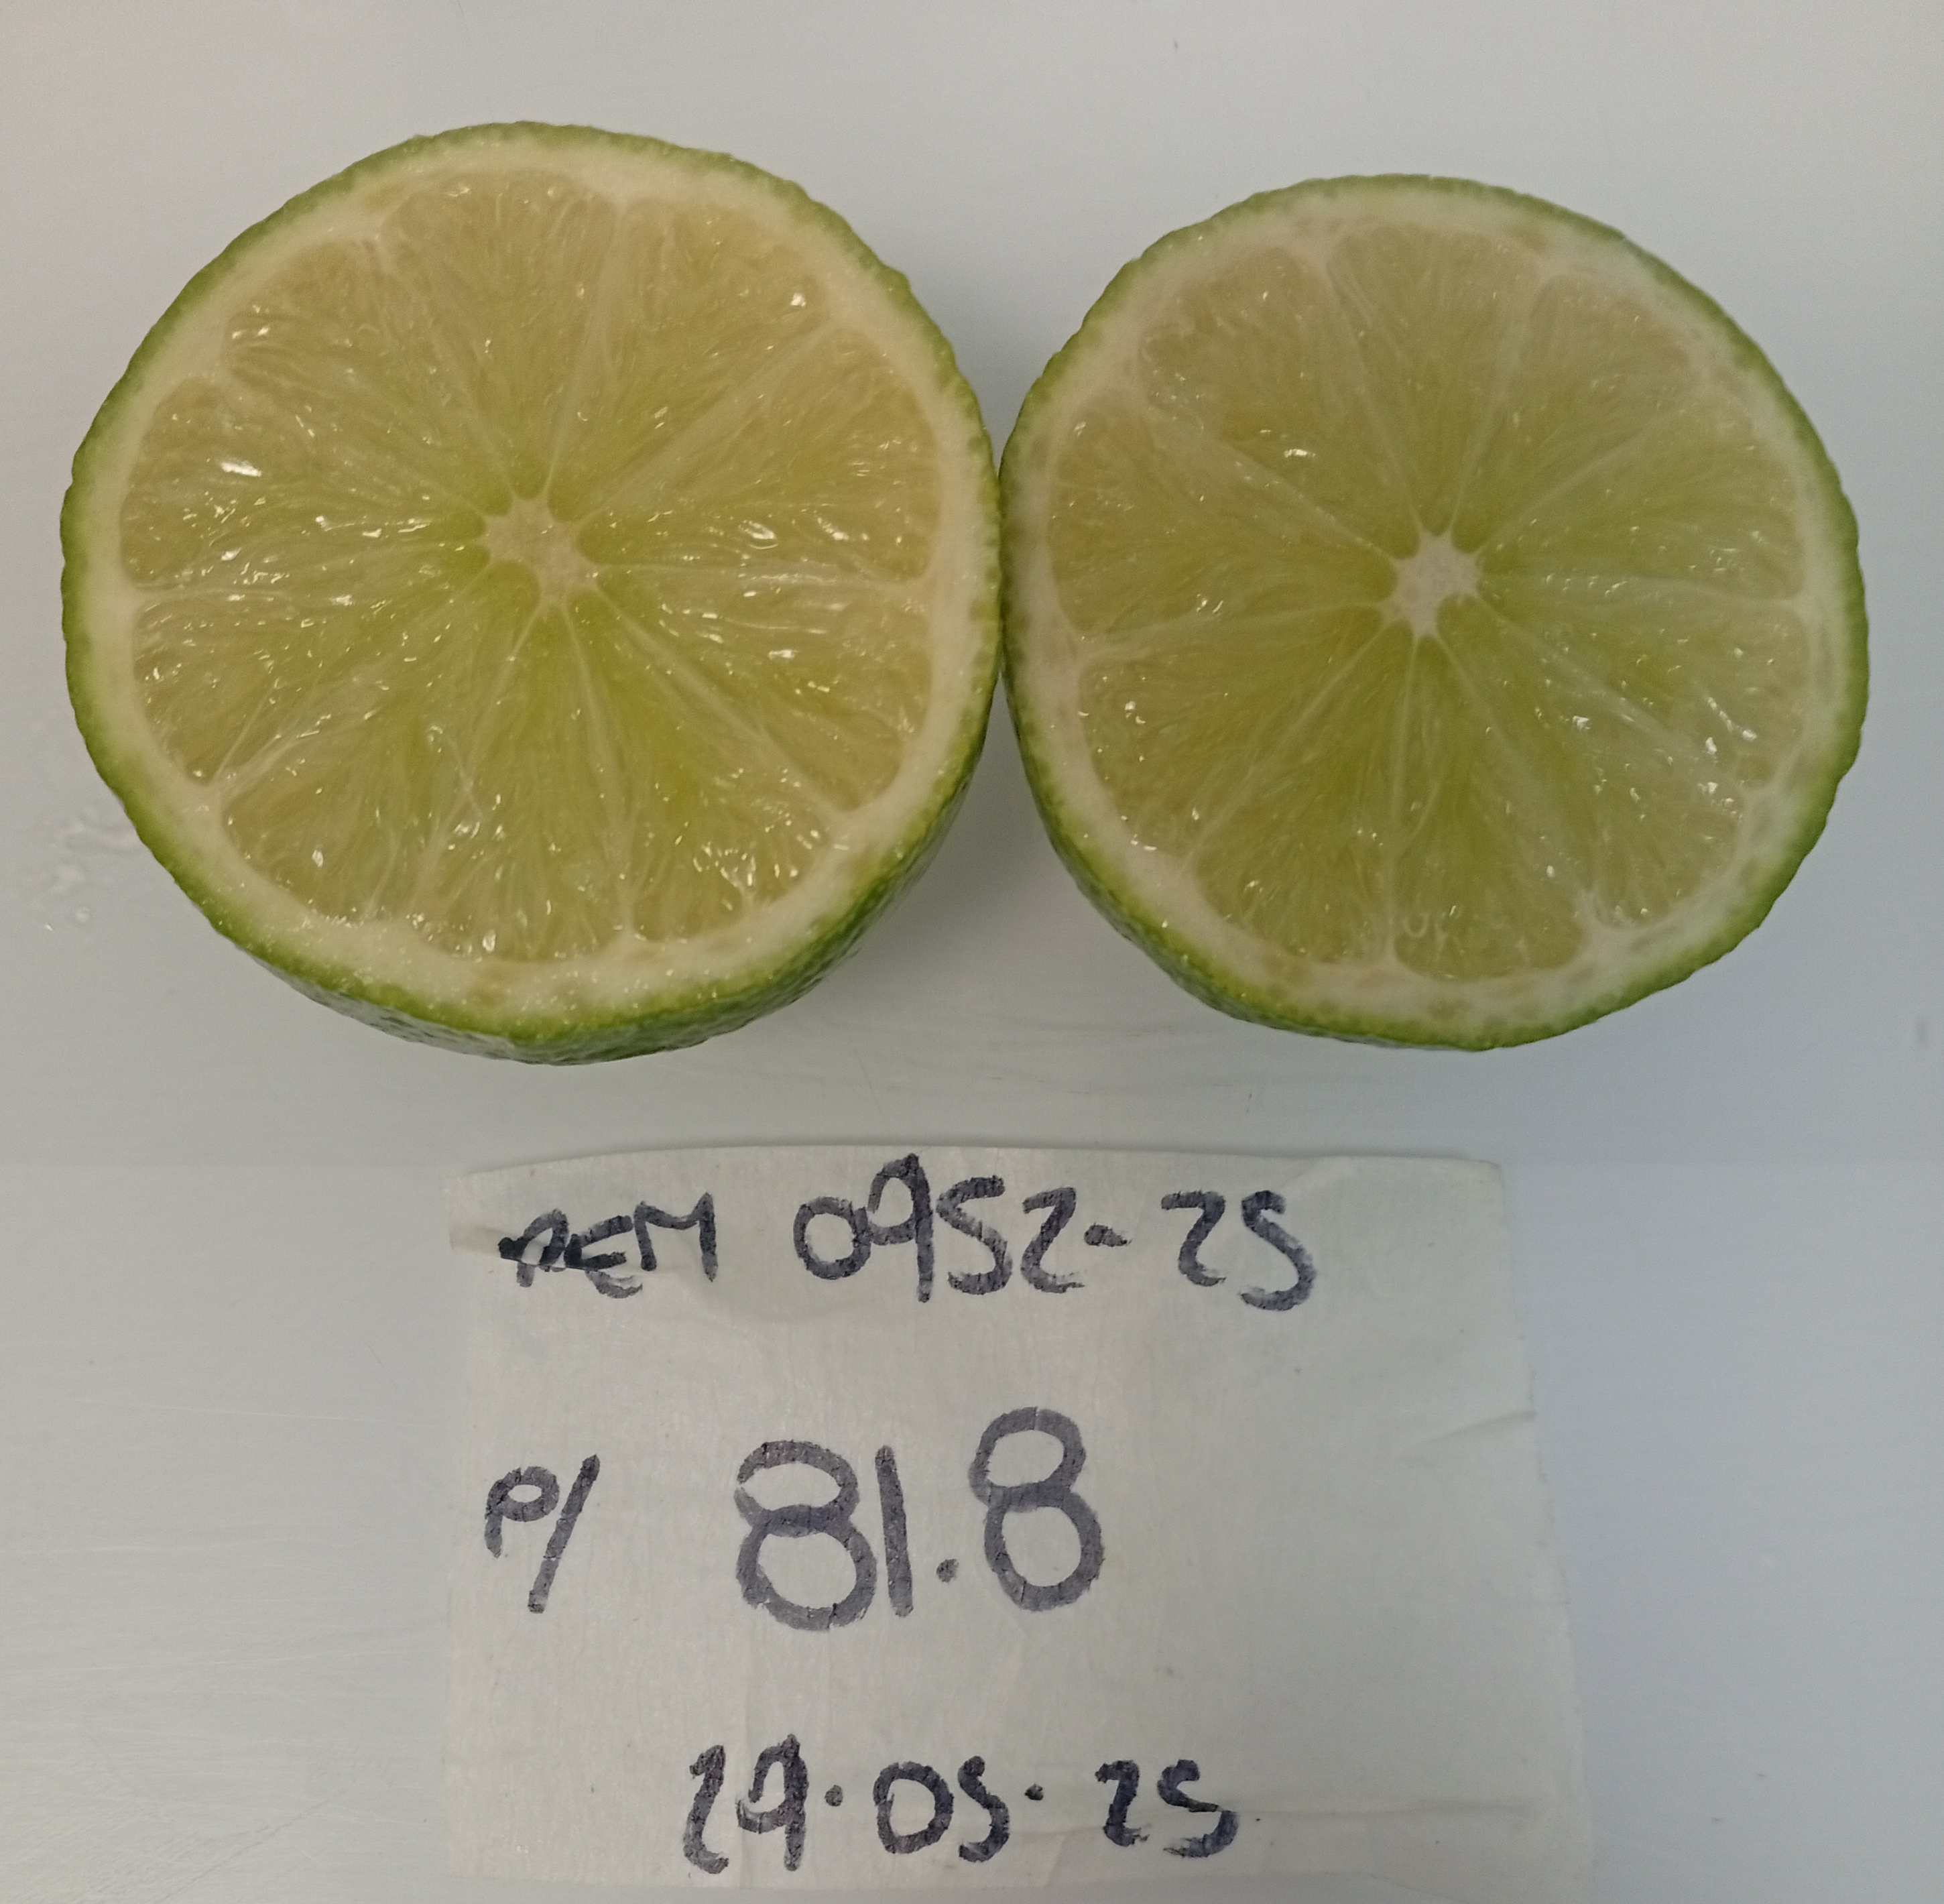 REM 0952-25
P/ 81.8
29.05.25